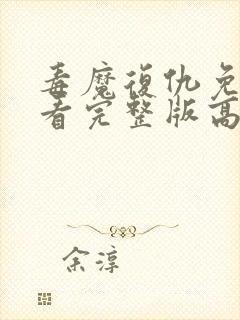 毒魔復仇免
看完整版高
余淳